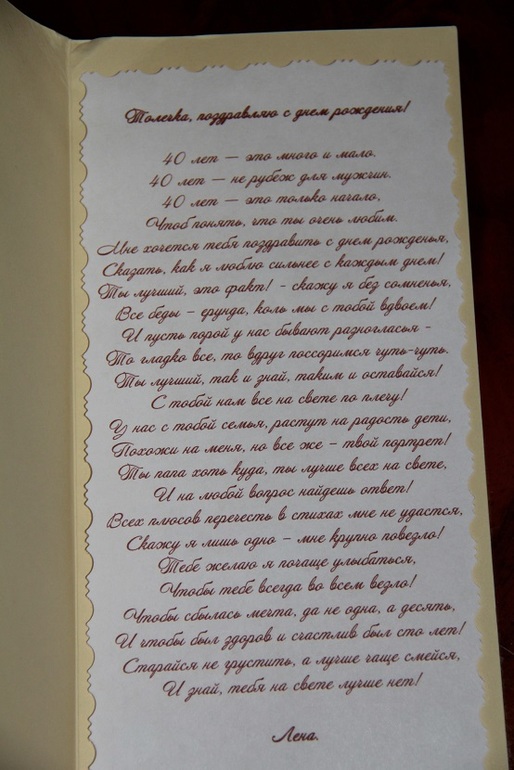 Толечка, поздравляю с днем рождения!
40 лет — это много и мало.
40 лет — не рубеж для мужчин.
40 лет — это только начало,
Чтоб понять, что ты очень любим.
Мне хочется тебя поздравить с днем рожденья,
Сказать, как я люблю сильнее с каждым днем!
Ты лучший, это факт! - скажу я без сомненья,
Все беды – ерунда, коль мы с тобой вдвоем!
И пусть порой у нас бывают разногласья -
То гладко все, то вдруг поссоримся чуть-чуть.
Ты лучший, так и знай, таким и оставайся!
С тобой нам все на свете по плечу!
У нас с тобой семья, растут на радость дети,
Похожи на меня, но все же – твой портрет!
Ты папа хоть куда, ты лучше всех на свете,
И на любой вопрос найдешь ответ!
Всех плюсов перечесть в стихах мне не удастся,
Скажу я лишь одно – мне крупно повезло!
Тебе желаю я почаще улыбаться,
Чтобы тебе всегда во всем везло!
Чтобы сбылась мечта, да не одна, а десять,
И чтобы был здоров и счастлив был сто лет!
Старайся не грустить, а лучше чаще смейся,
И знай, тебя на свете лучше нет!
Лена.